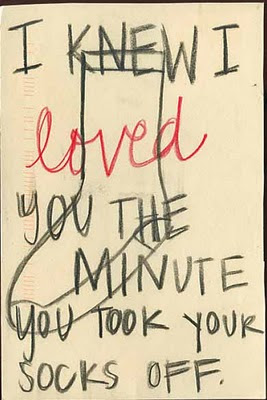 I KNEW I
loved
YOU THE
MINUTE
YOU TOOK YOUR
SOCKS OFF.